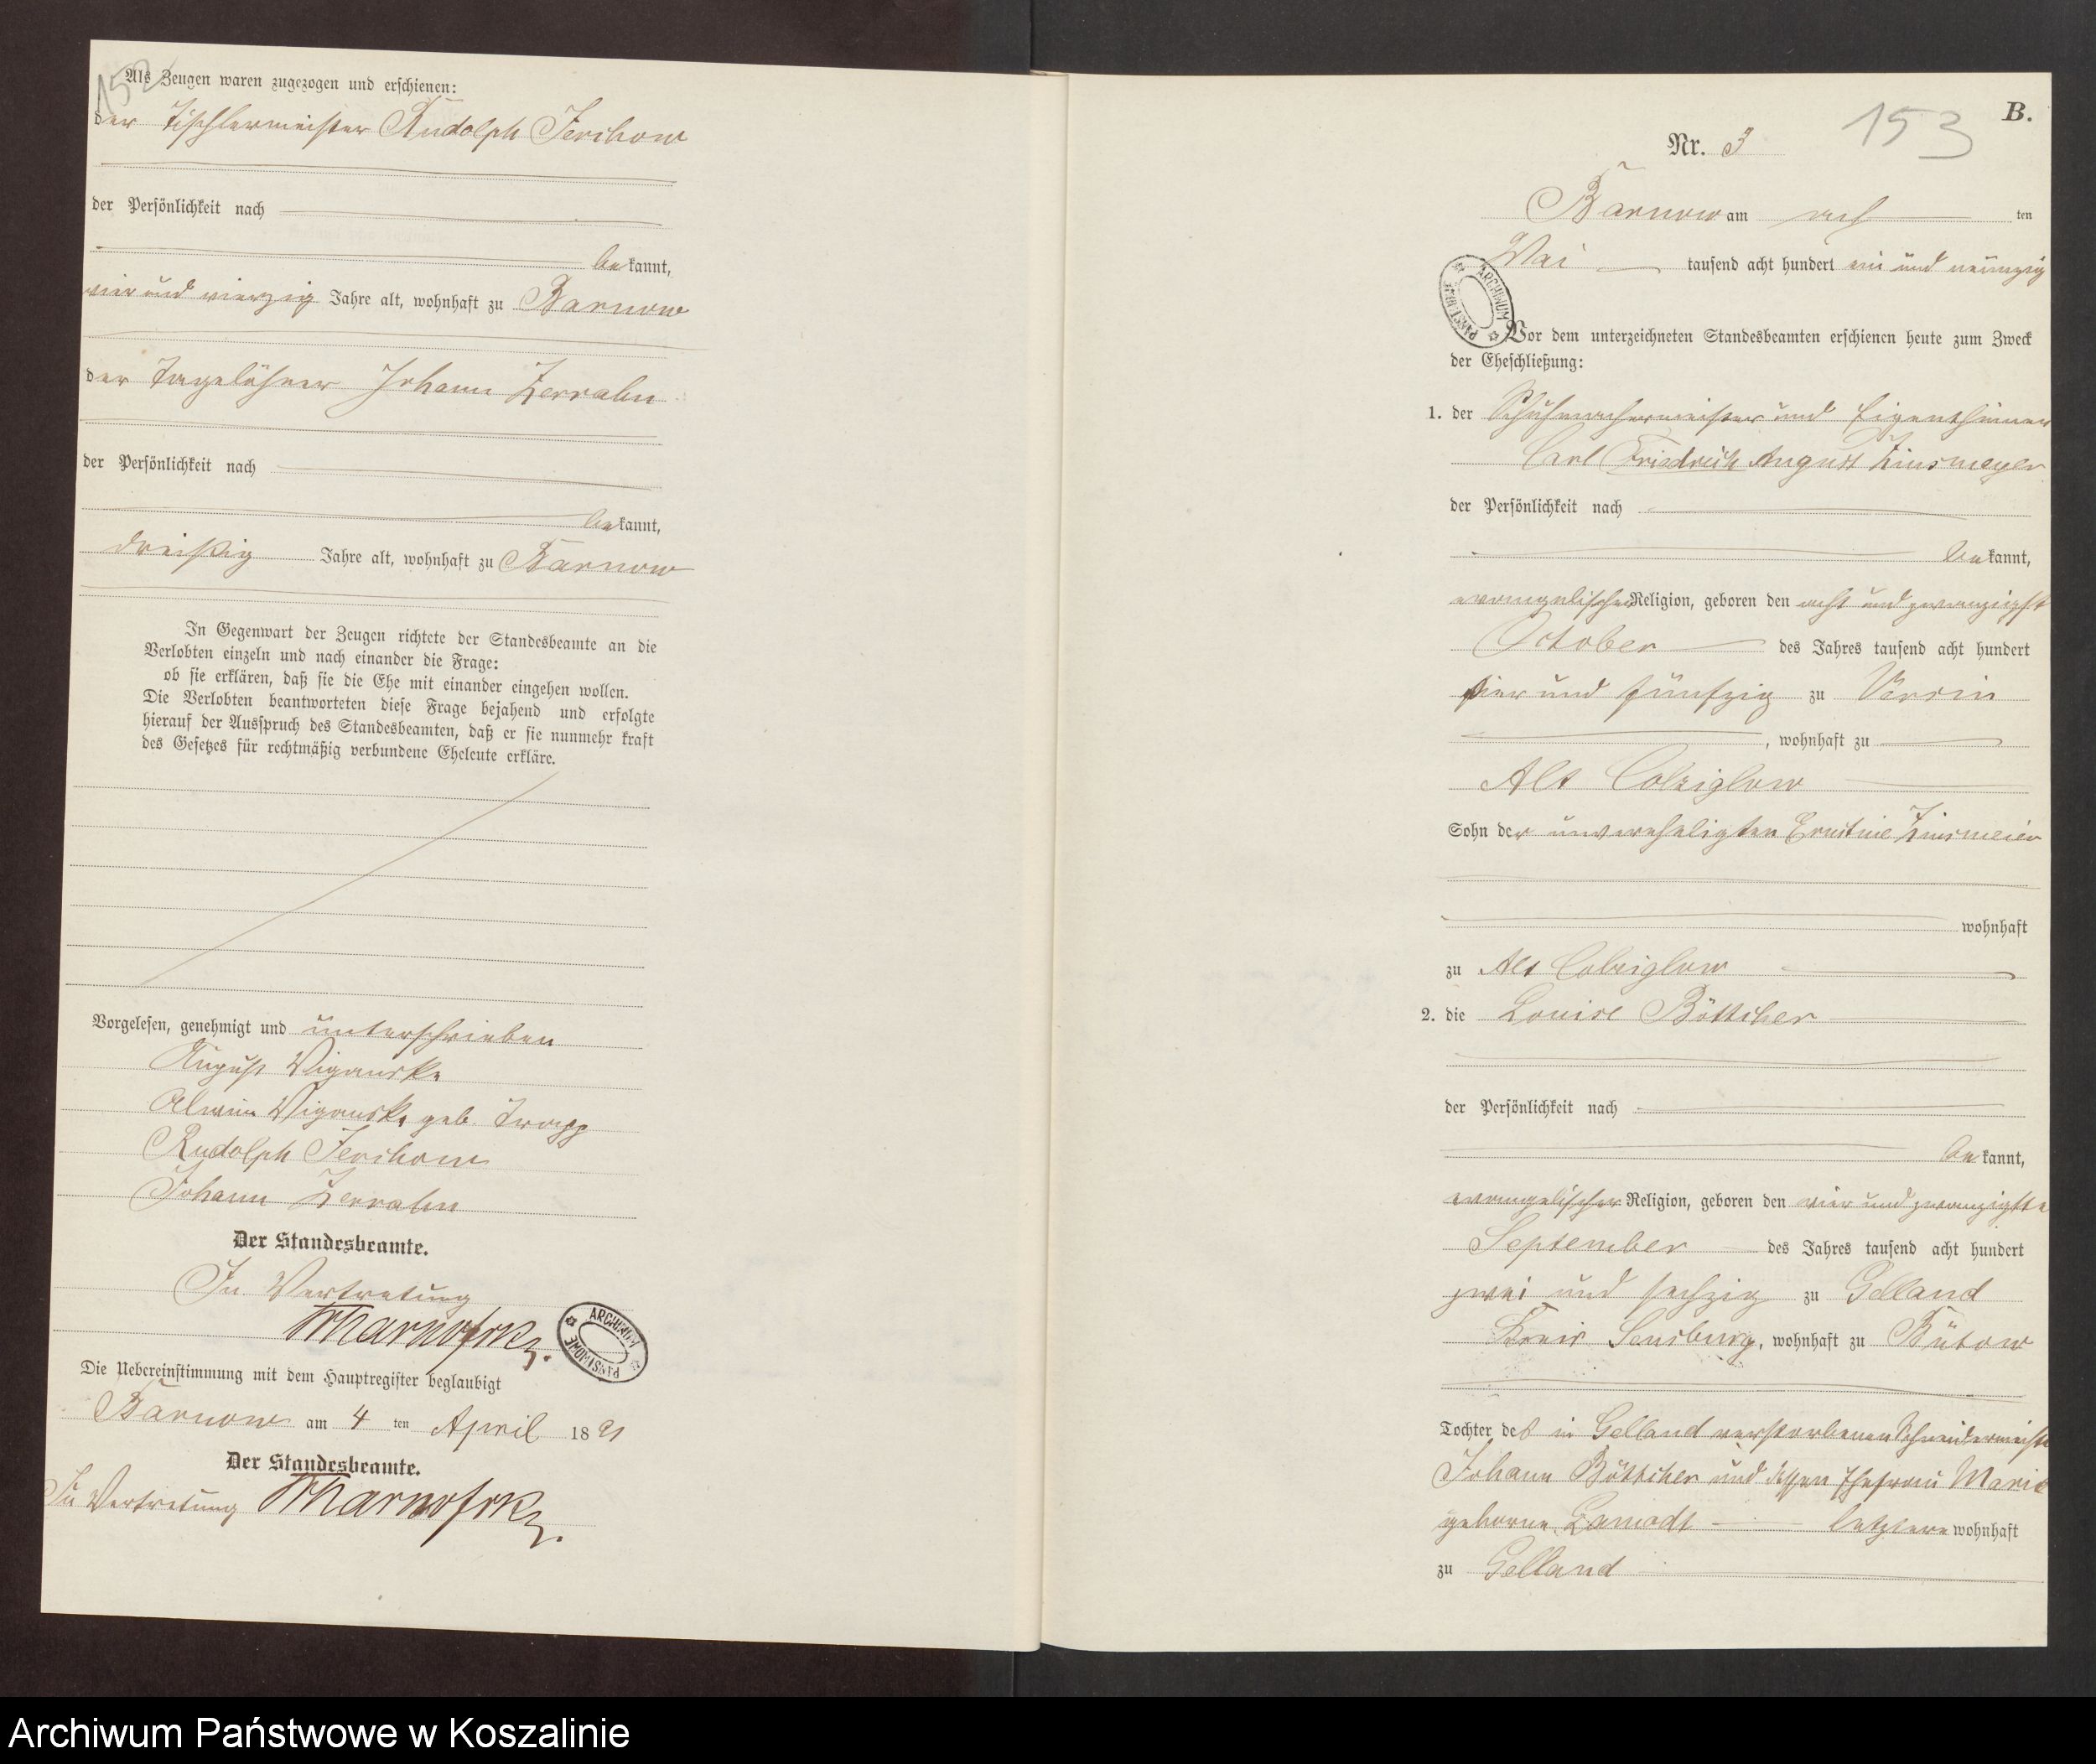 152
Als Zeugen waren zugezogen und erschienen:
der Tischlermeister Rudolph Jerchow
der Persönlichkeit nach
bekannt,
vier und vierzig Jahre alt, wohnhaft zu Barnow
der Tagelöhner Johann Zerrahn
der Persönlichkeit nach
bekannt,
dreißig Jahre alt, wohnhaft zu Barnow
In Gegenwart der Zeugen richtete der Standesbeamte an die
Verlobten einzeln und nach einander die Frage:
ob sie erklären, daß sie die Ehe mit einander eingehen wollen.
Die Verlobten beantworteten diese Frage bejahend und erfolgte
hierauf der Ausspruch des Standesbeamten, daß er sie nunmehr kraft
des Gesetzes für rechtmäßig verbundene Eheleute erkläre.
Vorgelesen, genehmigt und unterschrieben
August Viganske
Alwine Viganske geb. Trapp
Rudolph Jerchow
Johann Zerrahn
Der Standesbeamte.
In Vertretung
Die Uebereinstimmung mit dem Hauptregister beglaubigt
Barnow am 4 ten April 1891
Der Standesbeamte.
In Vertretung
ARCHIWUM PAŃSTWOWE
153
B.
Nr. 3
Barnow am ten
Mai tausend acht hundert ein und neunzig
ARCHIWUM PAŃSTWOWE
Vor dem unterzeichneten Standesbeamten erschienen heute zum Zweck
der Eheschließung:
1. der Schuhmachermeister und Eigenthümer
Carl Friedrich August Zinsmeyer
der Persönlichkeit nach
bekannt,
evangelischer Religion, geboren den acht und zwanzigst
October des Jahres tausend acht hundert
vier und fünfzig zu Versin
, wohnhaft zu
Alt Colziglow
Sohn der unvereheligten Ernstine Zinsmeier
wohnhaft
zu Alt Colziglow
2. die Louise Böttcher
der Persönlichkeit nach
bekannt,
evangelischer Religion, geboren den vier und zwanzigste
September des Jahres tausend acht hundert
zwei und sechzig zu Gelland
Kreis Sensburg, wohnhaft zu Bütow
Tochter des in Gelland verstorbenen Schneidermeiste
Johann Böttcher und dessen Ehefrau Marie
geborne letztere wohnhaft
zu Gelland
Archiwum Państwowe w Koszalinie